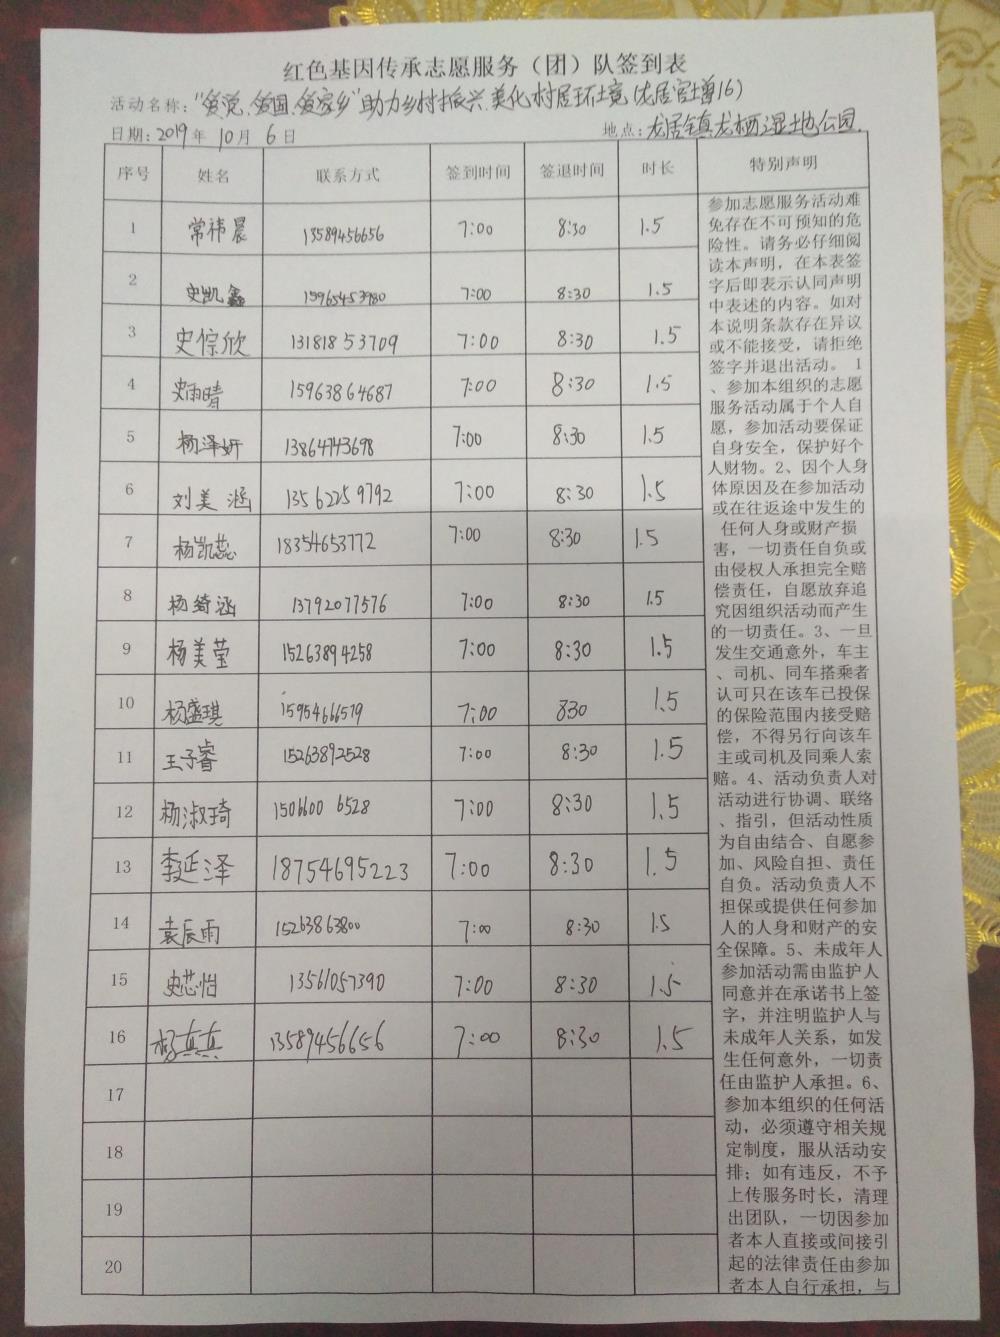 红色基因传承志愿服务（团）队签到表
活动名称：“爱党、爱国、爱家乡”助力乡村振兴、美化村居环境（龙居官增16）
日期：2019年 10月 6日 地点：龙居镇龙栖湿地公园.
序号 姓名 联系方式 签到时间 签退时间 时长 特别声明
1 常祎晨 13589456656 7:00 8:30 1.5
2 史凯鑫 15965453980 7:00 8:30 1.5
3 史倧欣 13181853709 7:00 8:30 1.5
4 史雨晴 15963864687 7:00 8:30 1.5
5 杨泽妍 13864743698 7:00 8:30 1.5
6 刘美涵 13562259792 7:00 8:30 1.5
7 杨凯蕊 18354653772 7:00 8:30 1.5
8 杨绮涵 13792077576 7:00 8:30 1.5
9 杨美莹 15263894258 7:00 8:30 1.5
10 杨盛琪 15954666579 7:00 830 1.5
11 王子睿 15263892528 7:00 8:30 1.5
12 杨淑琦 1506600 6528 7:00 8:30 1.5
13 李延泽 18754695223 7:00 8:30 1.5
14 袁辰雨 15263863800 7:00 8:30 1.5
15 史芯怡 13561057390 7:00 8:30 1.5
16 杨真真 13589456656 7:00 8:30 1.5
17
18
19
20
参加志愿服务活动难
免存在不可预知的危
险性。请务必仔细阅
读本声明，在本表签
字后即表示认同声明
中表述的内容。如对
本说明条款存在异议
或不能接受，请拒绝
签字并退出活动。 1
、参加本组织的志愿
服务活动属于个人自
愿，参加活动要保证
自身安全，保护好个
人财物。2、因个人身
体原因及在参加活动
或在往返途中发生的
任何人身或财产损
害，一切责任自负或
由侵权人承担完全赔
偿责任，自愿放弃追
究因组织活动而产生
的一切责任。3、一旦
发生交通意外，车主
、司机、同车搭乘者
认可只在该车已投保
的保险范围内接受赔
偿，不得另行向该车
主或司机及同乘人索
赔。4、活动负责人对
活动进行协调、联络
、指引，但活动性质
为自由结合、自愿参
加、风险自担、责任
自负。活动负责人不
担保或提供任何参加
人的人身和财产的安
全保障。5、未成年人
参加活动需由监护人
同意并在承诺书上签
字，并注明监护人与
未成年人关系，如发
生任何意外，一切责
任由监护人承担。6、
参加本组织的任何活
动，必须遵守相关规
定制度，服从活动安
排；如有违反，不予
上传服务时长，清理
出团队，一切因参加
者本人直接或间接引
起的法律责任由参加
者本人自行承担，与